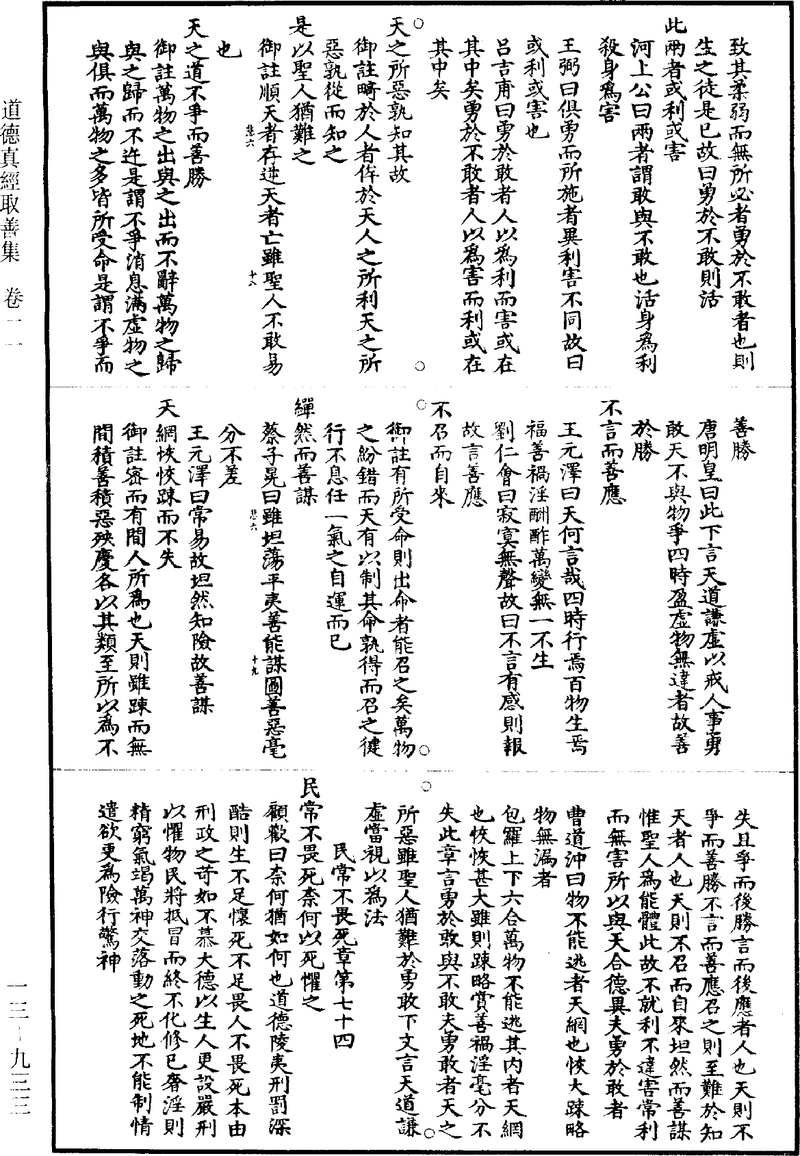 道德真經取善集　卷一一
一三—九三三
致其柔弱而無所必者勇於不敢者也則
生之徒是已故曰勇於不敢則活
此兩者或利或害
河上公曰兩者謂敢與不敢也活身為利
殺身為害
王弼曰俱勇而所施者異利害不同故曰
或利或害也
呂吉甫曰勇於敢者人以為利而害或在
其中矣勇於不敢者人以為害而利或在
其中矣
天之所惡孰知其故
御註畸於人者侔於天人之所利天之所
惡孰從而知之
是以聖人猶難之
御註順天者存逆天者亡雖聖人不敢易
也
天之道不爭而善勝
御註萬物之出與之出而不辭萬物之歸
與之歸而不迕是謂不爭消息滿虛物之
與俱而萬物之多皆所受命是謂不爭而
善勝
唐明皇曰此下言天道謙虛以戒人事勇
敢天不與物爭四時盈虛物無違者故善
於勝
不言而善應
王元澤曰天何言哉四時行焉百物生焉
福善禍淫酬酢萬變無一不生
劉仁會曰寂寞無聲故曰不言有感則報
故言善應
不召而自來
御註有所受命則出命者能召之矣萬物
之紛錯而天有以制其命孰得而召之健
行不息任一氣之自運而已
繟然而善謀
蔡子晃曰雖坦蕩平夷善能謀圖善惡毫
分不差
王元澤曰常易故坦然知險故善謀
天網恢恢踈而不失
御註密而有間人所為也天則雖踈而無
間積善積惡殃慶各以其類至所以為不
失且爭而後勝言而後應者人也天則不
爭而善勝不言而善應召之則至難於知
天者人也天則不召而自來坦然而善謀
惟聖人為能體此故不就利不違害常利
而無害所以與天合德異夫勇於敢者
曹道沖曰物不能逃者天網也恢大踈略
物無漏者
包羅上下六合萬物不能逃其內者天網
也恢恢甚大雖則踈略賞善禍淫毫分不
失此章言勇於敢與不敢夫勇敢者天之
所惡雖聖人猶難於勇敢下文言天道謙
虛當視以為法
民常不畏死章第七十四
民常不畏死柰何以死懼之
顧歡曰柰何猶如何也道德陵夷刑罰深
酷則生不足懷死不足畏人不畏死本由
刑政之苛如不慕大德以生人更設嚴刑
以懼物民將抵冒而終不化修已奢淫則
精窮氣竭萬神交落動之死地不能制情
遣欲更為險行驚神